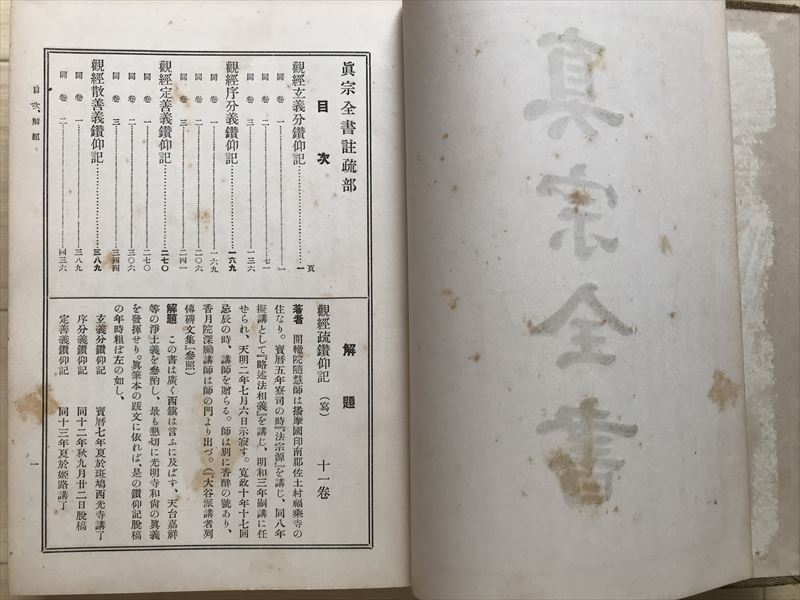 眞宗全書
眞宗全書註疏部
目次
觀經玄義分鑽仰記…………一頁
同卷一…………一
同卷二…………七一
同卷三…………一三六
觀經序分義鑽仰記…………一六九
同卷一…………一六九
同卷二…………二〇六
同卷三…………二四一
觀經定善義鑽仰記…………二七〇
同卷一…………二七〇
同卷二…………三〇六
同卷三…………三四四
觀經散善義鑽仰記…………三八九
同卷一…………三八九
同卷二…………四三六
解題
觀經疏鑽仰記（寫）十一卷
著者 開轍院隨慧師は播磨國印南郡佐土村福乘寺の
住なり。寶曆五年寮司の時『法宗源』を講じ、同八年
擬講として『略述法相義』を講じ、明和三年嗣講に任
せられ、天明二年七月六日示寂す。寬政十年十七回
忌辰の時、講師を贈らる。師は別に香醉の號あり、
香月院深勵講師は師の門より出づ。（『大谷派講者列
傳碑文集』參照）
解題 この書は廣く西鎭は言ふに及ばず、天台嘉祥
等の淨土義を參酌し、最も懇切に光明寺和尙の眞義
を發揮せり。眞筆本の跋文に依れば、是の鑽仰記脫稿
の年時粗ぼ左の如し、
玄義分鑽仰記 寶曆七年夏於斑鳩西光寺講了
序分義鑽仰記 同十二年秋九月廿二日脫稿
定善義鑽仰記 同十三年夏於姬路講了
目次、解題
一